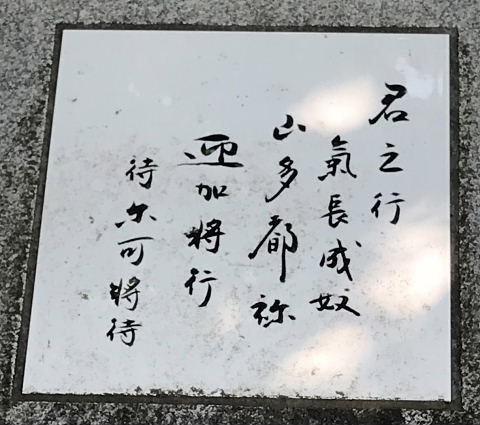 君之行
氣長成奴
山多都祢
迎加將行
待尓可將待